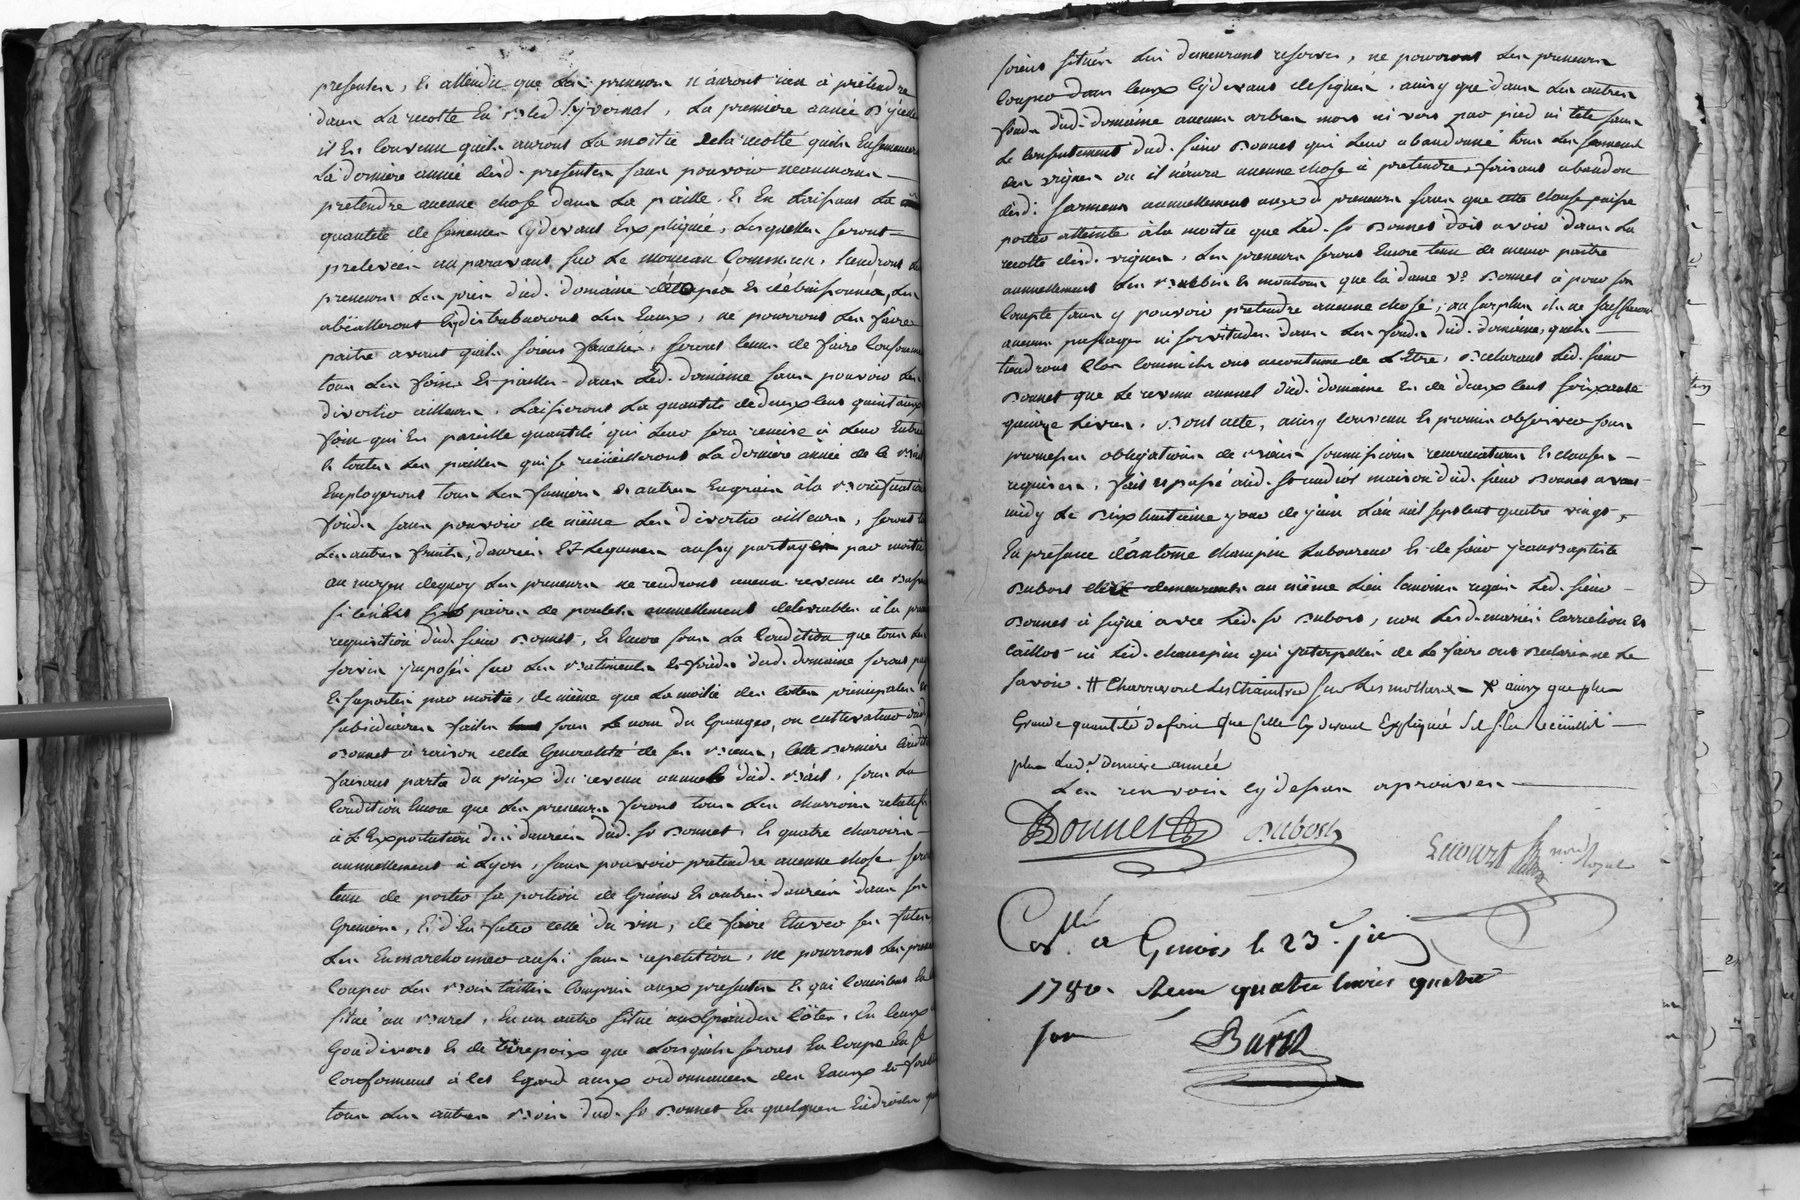 presentes, et attendu que les preneurs n'auront rien à prétendre
dans la recolte en bled hyvernal, la première année d'ycelles
il est convenu quils auront la moitié de la recolte quils Ensemenceront
la dernière année desd. presentes sans pouvoir neanmoins
pretendre aucune chose dans la paille, et En laissant la
quantité de semences cydevant Expliquée, lesquelles seront
prelevées auparavant sur le monceau Commun, tiendront les
preneurs les prés dud. domaine et débuissonnés, les
abéalleront et distribueront les Eaux, ne pourront les faire
paitre avant quils soient fauchés, seront tenus de faire Consommer
tous les foins et pailles dans led. domaine sans pouvoir les
divertir ailleurs, laisseront la quantité de deux cens quintaux
foin qui est pareille quantité qui leur sera remise à leur Entrée
et toutes les pailles qui se recüeilleront la dernière année de le bail
Employeront tous les fumiers et autres Engrais à la bonification
fonds sans pouvoir de même les divertir ailleurs, seront
les autres fruits, danrées Et legumes aussy partagés par moitié
au moyen dequoy les preneurs ne rendront aucun revenu de
si ce n'est six paires de poulets annuellement delivrables à la première
requisition dud. sieur Bonnet, et Encore sous la Condition que tous les
servis imposés sur les batiments et fonds dud. domaine seront payés
et suportés par moitié, de même que la moitié des cotes principales et
subsidiaires faites sous le nom du Granger, ou cultivateur dud.
Bonnet à raison de la Generalité de ses biens, cette dernière Condition
faisant partie du prix du revenu annuel dud. bail, sous la
Condition Encore que les preneurs feront tous les charrois relatifs
à l'Exportation des danrées dud. sr Bonnet, et quatre charrois
annuellement à Lyon, sans pouvoir pretendre aucune chose seront
tenus de porter sa portion de Grains et autres danrées dans ses
Greniers, et d'En futer celle du vin, de faire Etuver ses futes
les Enmarchonner aussi sans repetition, ne pourront les preneurs
couper les bois taillis Compris aux presentes et qui Consistent En
situé au , En un autre situé aux Grandes Côtes, En ceux
Goudivers et de Tirepoix que lorsquils seront En coupe En se
Conformant à cet Egard aux ordonnances des Eaux et forêts
tous les autres bois dud. sr Bonnet En quelques Endroits qu'ils
soient situés lui demeurant reservés, ne pourront les preneurs
couper dans ceux cydevant designés, ainsy que dans les autres
fonds dud. domaine aucuns arbres mors ni vifs par pied ni tete sans
le consentement dud. sieur Bonnet qui leur abandonne tous les sarments
des vignes ou il n'aura aucune chose à pretendre, faisant abandon
desd. sarmens annuellement auxd preneurs sans que cette clause puisse
porter atteinte à la moitié que led. sr Bonnet doit avoir dans la
recolte desd. vignes, les preneurs seront Encore tenu de mener paitre
annuellement les brebis et moutons que la dame ve Bonnet à pour son
Compte sans y pouvoir pretendre aucune chose, au surplus ils ne souffriront
aucuns passages ni servitudes dans les fonds dud. domaine, quils
tiendront clos comme ils ont accoutumé de l'Etre, Déclarant led. sieur
Bonnet que le revenu annuel dud. domaine est de deux cens soixante
quinze livres. Dont acte, ainsy convenu et promis observer sous
promesses obligations de biens soumissions renonciations et clauses
requises, fait et passé aud. St maison dud. sieur Bonnet avant
midy le Dixhuitieme jour de juin l'an mil sept cent quatre vingt,
En présence d'antoine champin Laboureur et de sieur jeanbaptiste
Dubost demeurants au même lieu temoins requis led. sieur
Bonnet à signé avec led. sr Dubost, non lesd. mariés Carretion et
Caillot ni led. champin qui interpellés de le faire ont Déclaré ne le
savoir. # Charreront les Chaintres sur les mottures # ainsy que plus
Grande quantité de foin que Celle Cy devant Expliquée S'il s'En recüillit
plus lad. dernière année
Les renvois cy dessus aprouvés
Bonnet Dubost
not. Royal
Collé à Genois le 23e juin
1780. Reçu quatre livres quatre
sous